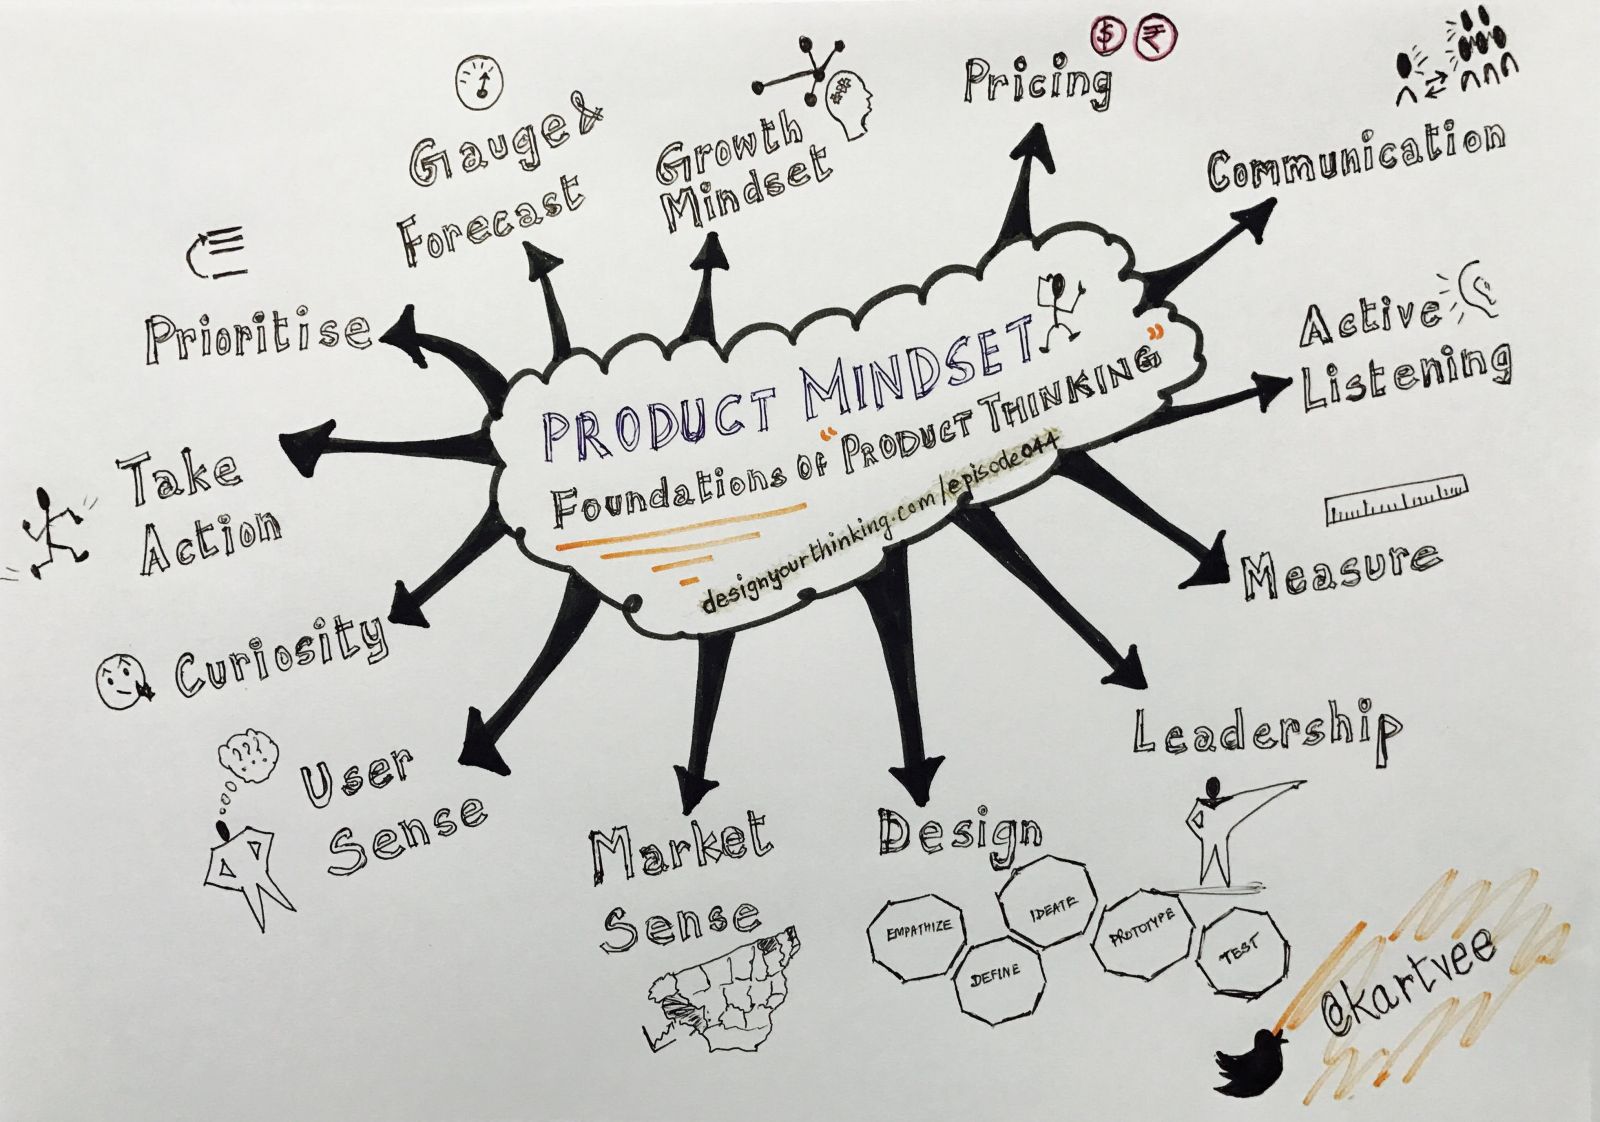 PRODUCT MINDSET
FOUNDATIONS OF "PRODUCT THINKING"
designyourthinking.com/episode044
Prioritise
Gauge &
Forecast
Growth
Mindset
Pricing
$ ₹
Communication
Active
Listening
Measure
Leadership
Design
EMPATHIZE
DEFINE
IDEATE
PROTOTYPE
TEST
Market
Sense
User
Sense
???
Curiosity
Take
Action
@kartvee